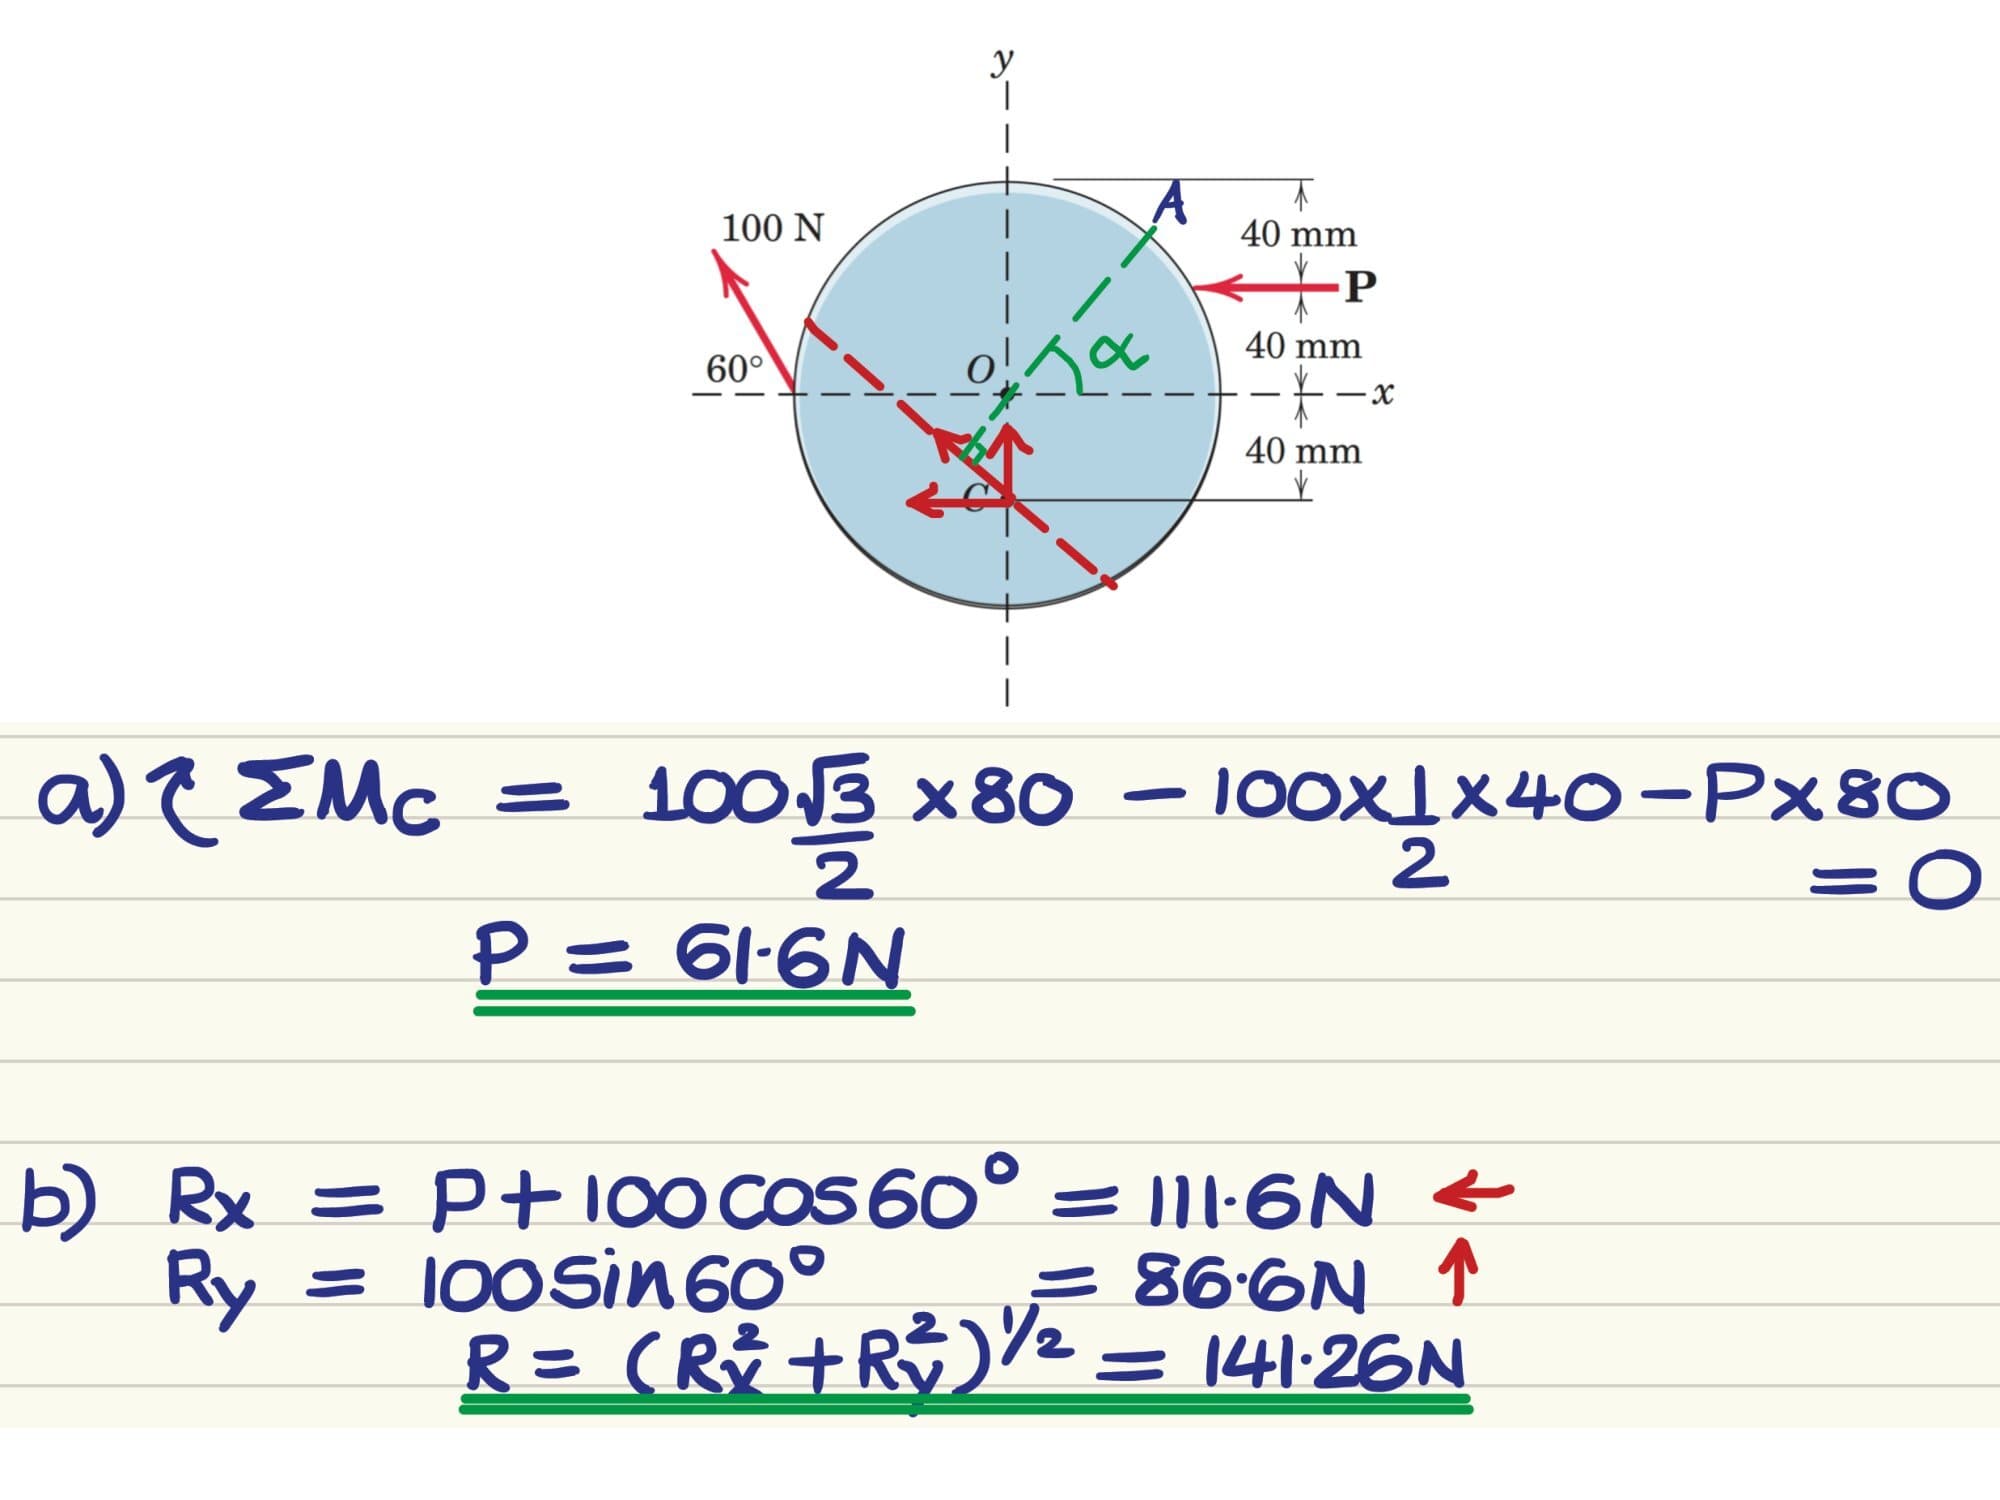 y
A
100 N
40 mm
P
60°
O
α
40 mm
x
40 mm
C
a) ΣMc = 100√3/2 x 80 - 100 x 1/2 x 40 - P x 80 = 0
P = 61.6N
b) Rx = P + 100 cos 60° = 111.6N ←
Ry = 100 sin 60° = 86.6N ↑
R = (Rx² + Ry²)^1/2 = 141.26N